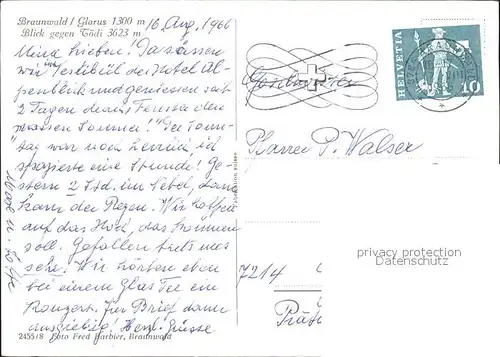 Braunwald / Glarus 1300 m
Blick gegen Tödi 3623 m
16. Aug. 1966
Meine Lieben! Da sassen
wir im Vestibül des Hotel Al-
penblick und geniessen seit
2 Tagen durchs Fenster den
nassen Sommer! Der Sonn-
tag war noch herrlich ich
spazierte eine Stunde! Ge-
stern 2 Std. im Nebel, dann
kam der Regen. Wir hoffen
auf das Hoch, das kommen
soll. Gefallen tut's uns
sehr. Wir hörten eben
bei einem Glas Tee ein
Konzert. Für Brief dann
ausgiebig! Herzl. Grüsse
2455/8 Foto Fred Harbier, Braunwald
HELVETIA
10
Pfarrer P. Walser
7214
privacy protection
Datenschutz